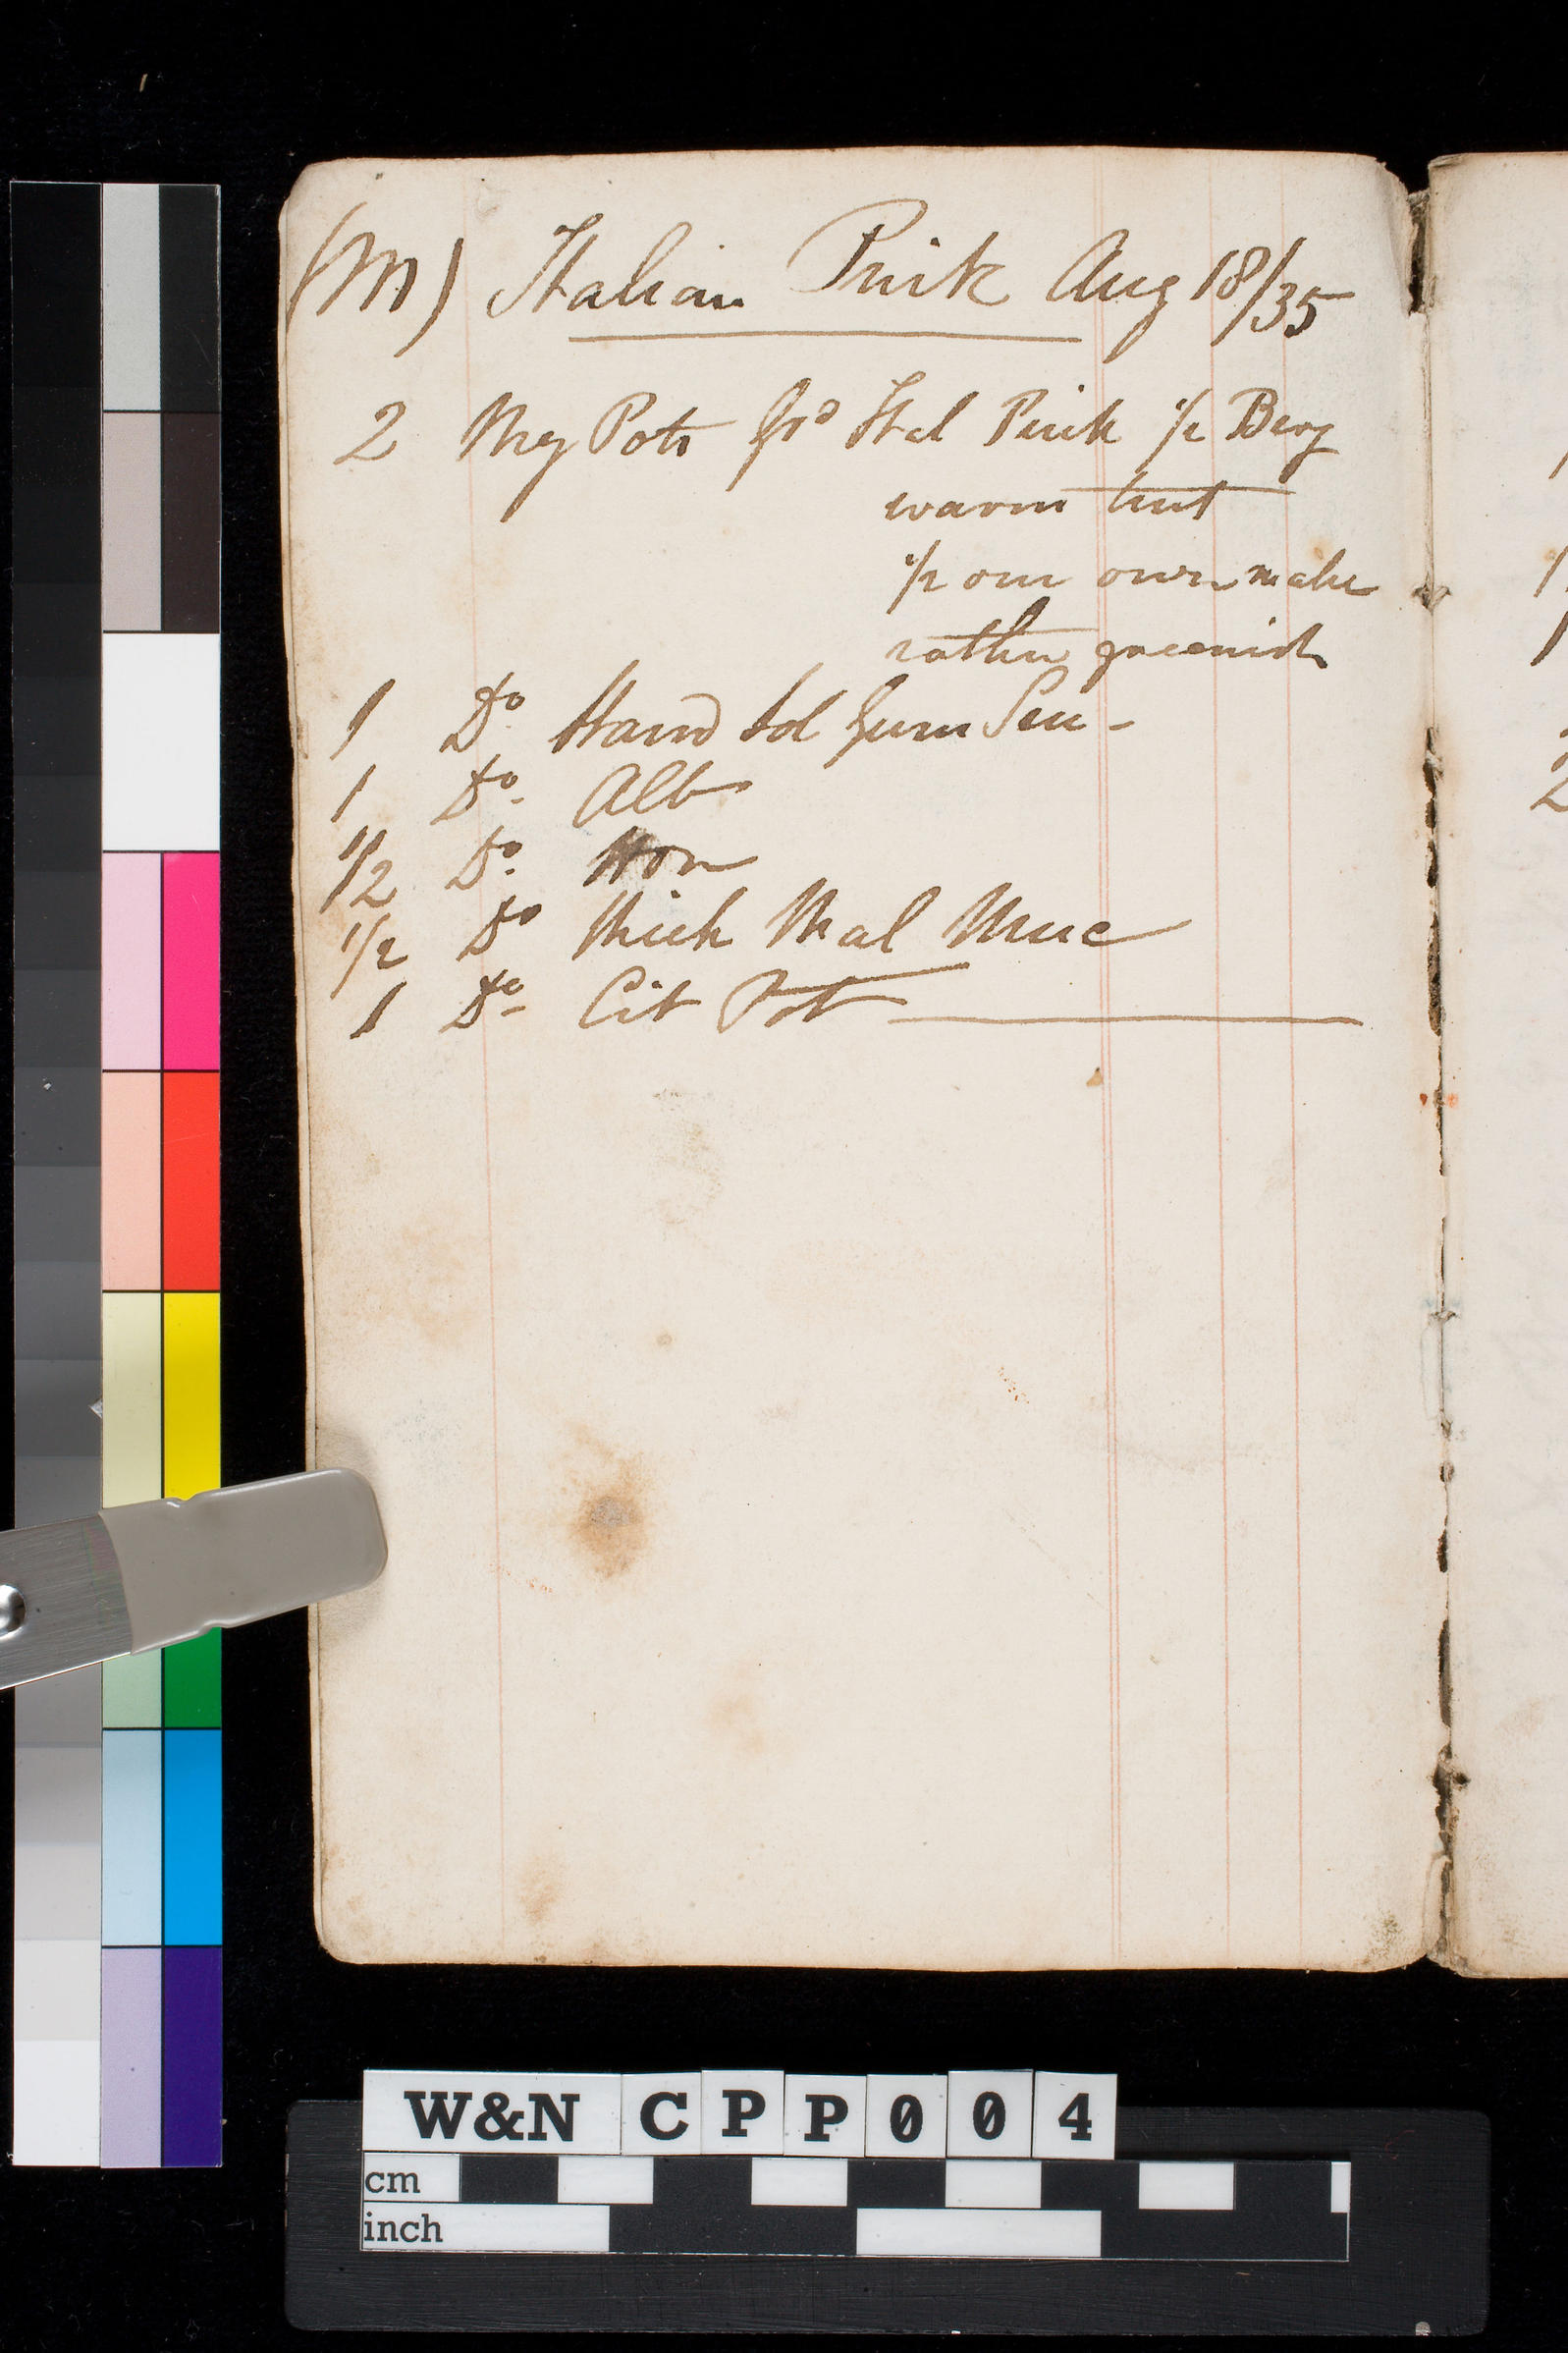 (M) Italian Pink Aug 18/35
2 Meg Pots Grd Ital Pink 1/2 Berg
warm tint
1/2 our own make
rather greenish
1 Do. Hard Sol Gum Sen -
1 Do. Alb
1/2 Do. Hon
1/2 Do Thick Mal Muc
1 Do- Cit Pot
1
1
2
W&N CPP004
cm
inch